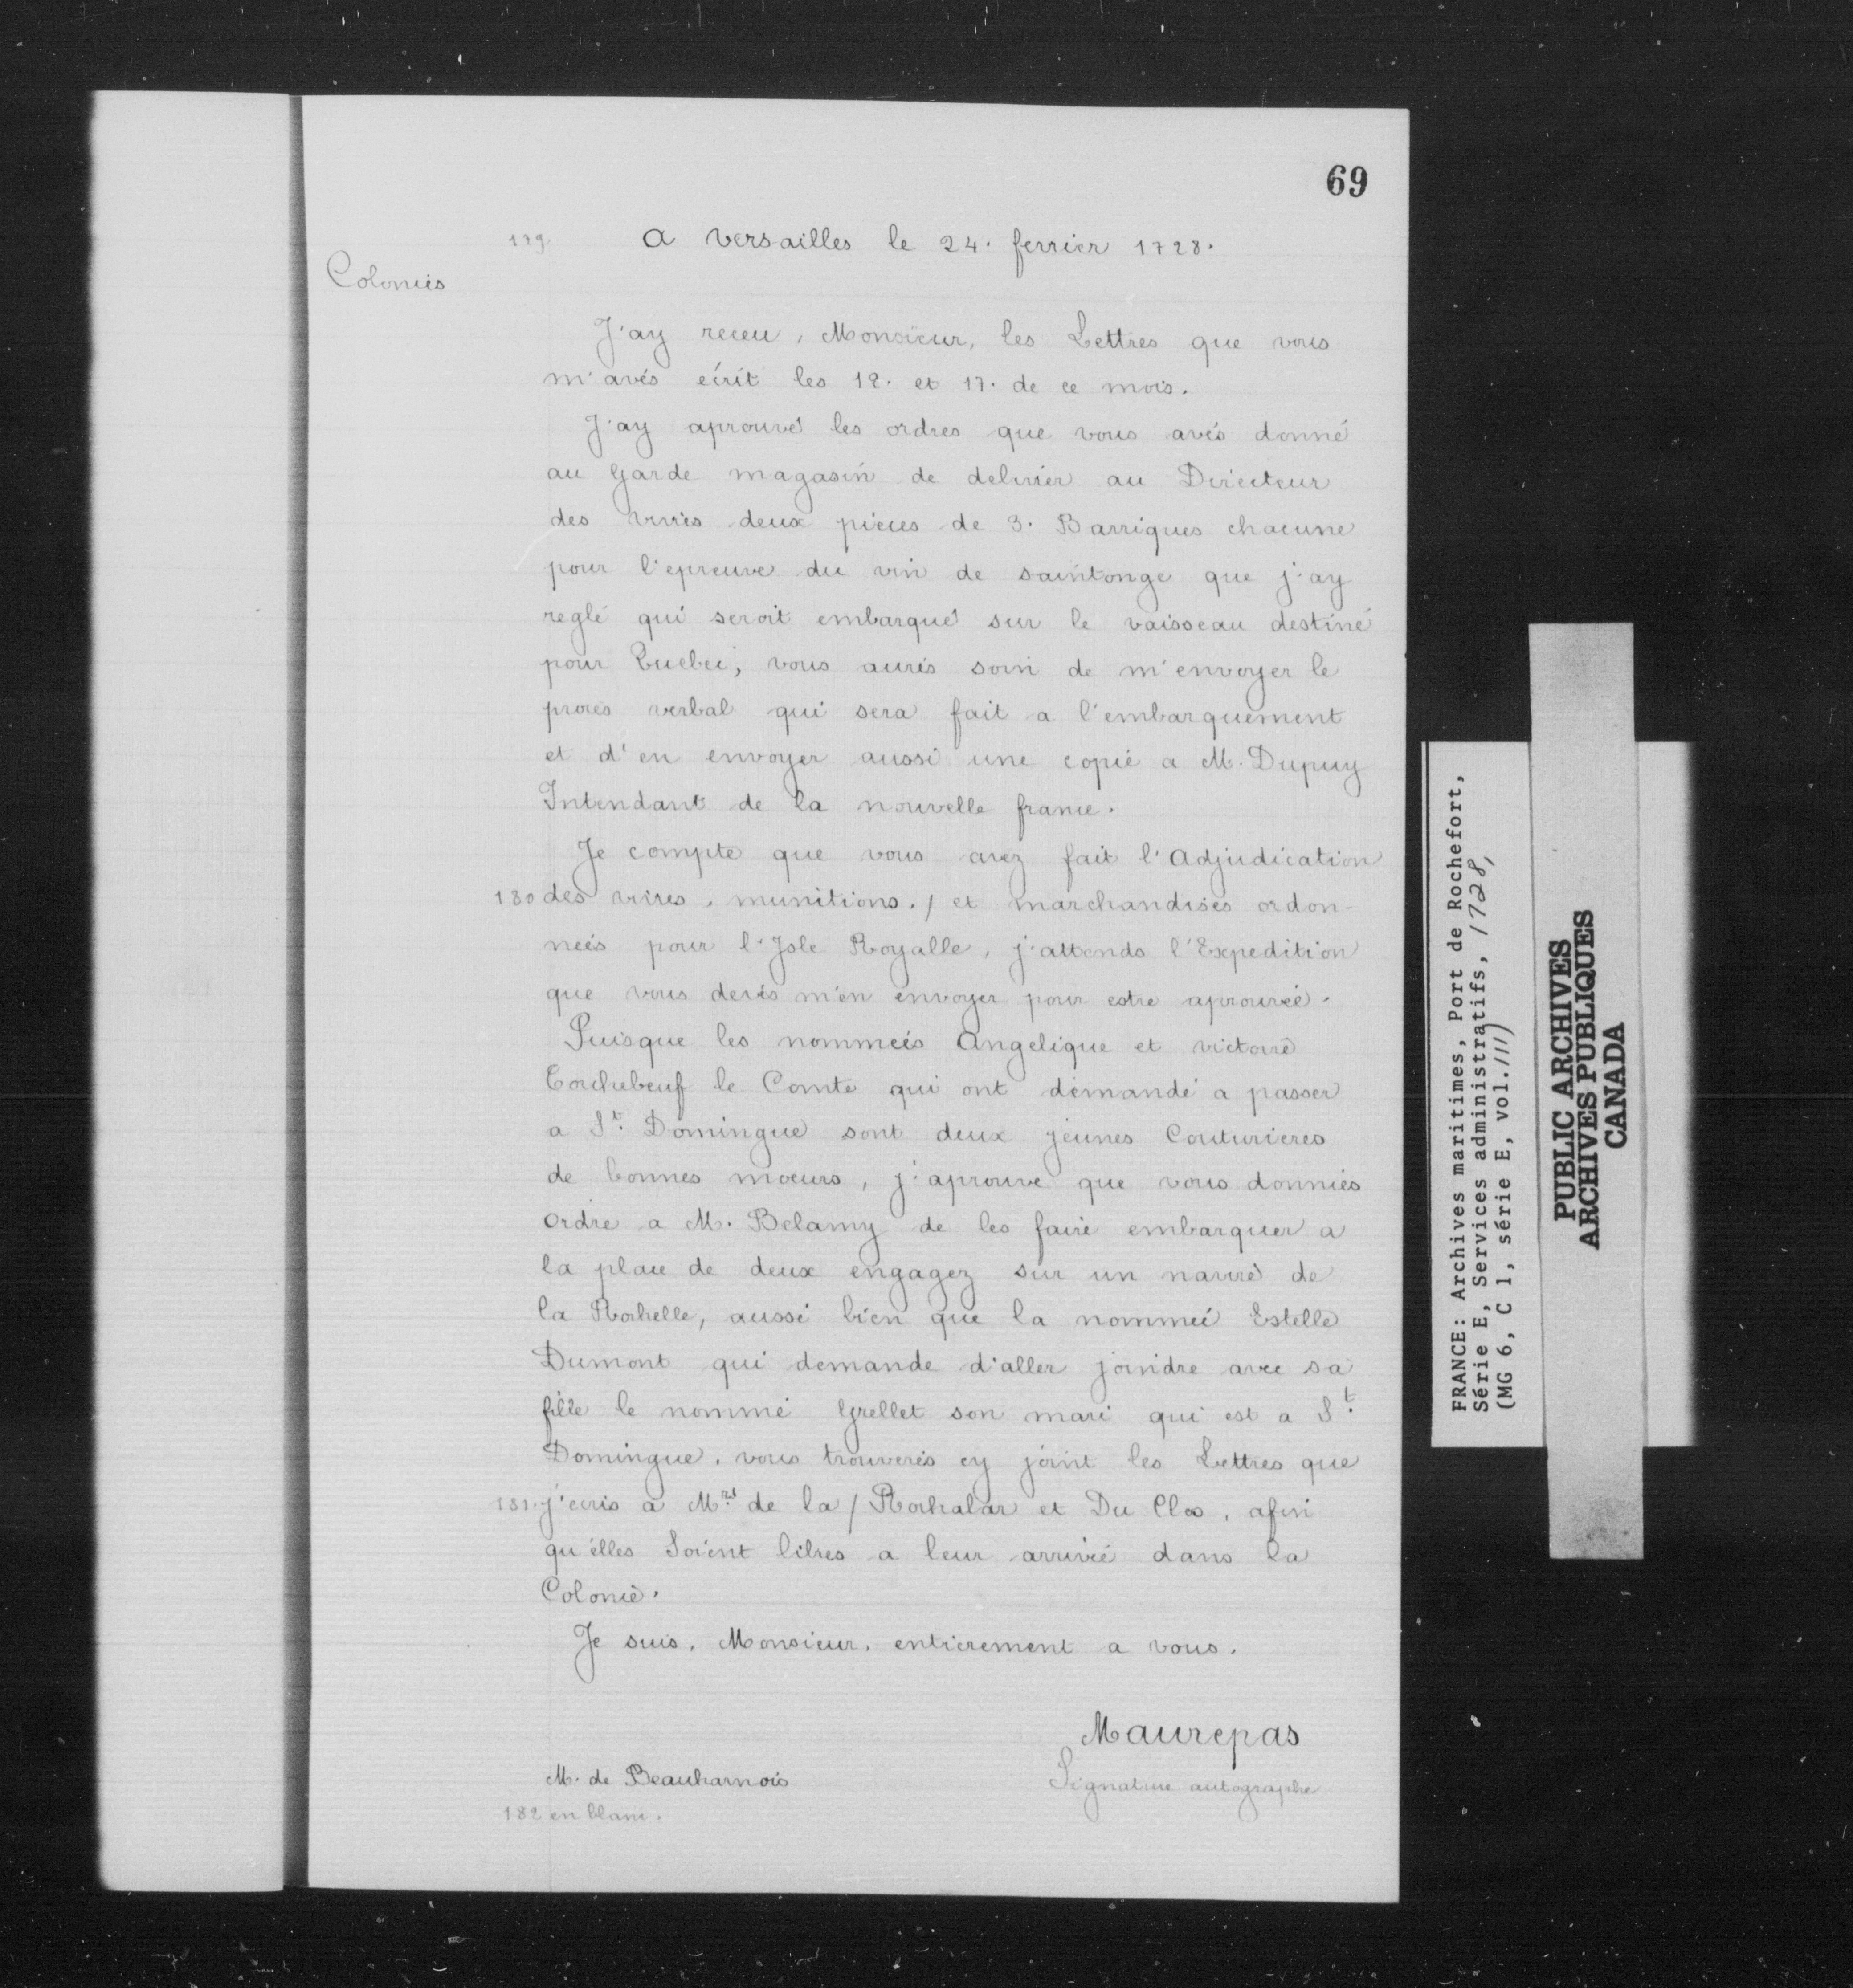 69
179 A Versailles le 24. fevrier 1728.
Colonies
J'ay receu, Monsieur, les Lettres que vous
m'avés écrit les 12. et 17. de ce mois.
J'ay aprouvé les ordres que vous avés donné
au garde magasin de delivrer au Directeur
des vivres deux pieces de 3. Barriques chacune
pour l'epreuve du vin de saintonge que j'ay
reglé qui seroit embarqué sur le vaisseau destiné
pour Quebec, vous aurés soin de m'envoyer le
procés verbal qui sera fait a l'embarquement
et d'en envoyer aussi une copie a M. Dupuy
Intendant de la nouvelle france.
Je compte que vous avez fait l'Adjudication
180 des vivres, munitions, / et marchandises ordon-
neés pour l'Isle Royalle, j'attends l'Expedition
que vous devés m'en envoyer pour estre aprouvée.
Puisque les nommeés Angelique et victoire
Torchebeuf le Comte qui ont demandé a passer
a St. Domingue sont deux jeunes Couturieres
de bonnes moeurs, j'aprouve que vous donniés
ordre a M. Belamy de les faire embarquer a
la place de deux engagez sur un navire de
la Rochelle, aussi bien que la nommeé Estelle
Dumont qui demande d'aller joindre avec sa
fille le nommé Grellet son mari qui est a St.
Domingue. vous trouverés cy joint les Lettres que
181. j'ecris a Mrs de la / Rochalar et Du Clos, afin
qu'elles Soient libres a leur arrivée dans la
Colonie.
Je suis, Monsieur, entierement a vous.
Maurepas
M. de Beauharnois Signature autographe
182 en blanc.
FRANCE: Archives maritimes, Port de Rochefort,
Série E, Services administratifs, 1728,
(MG 6, C 1, série E, vol. 111)
PUBLIC ARCHIVES
ARCHIVES PUBLIQUES
CANADA